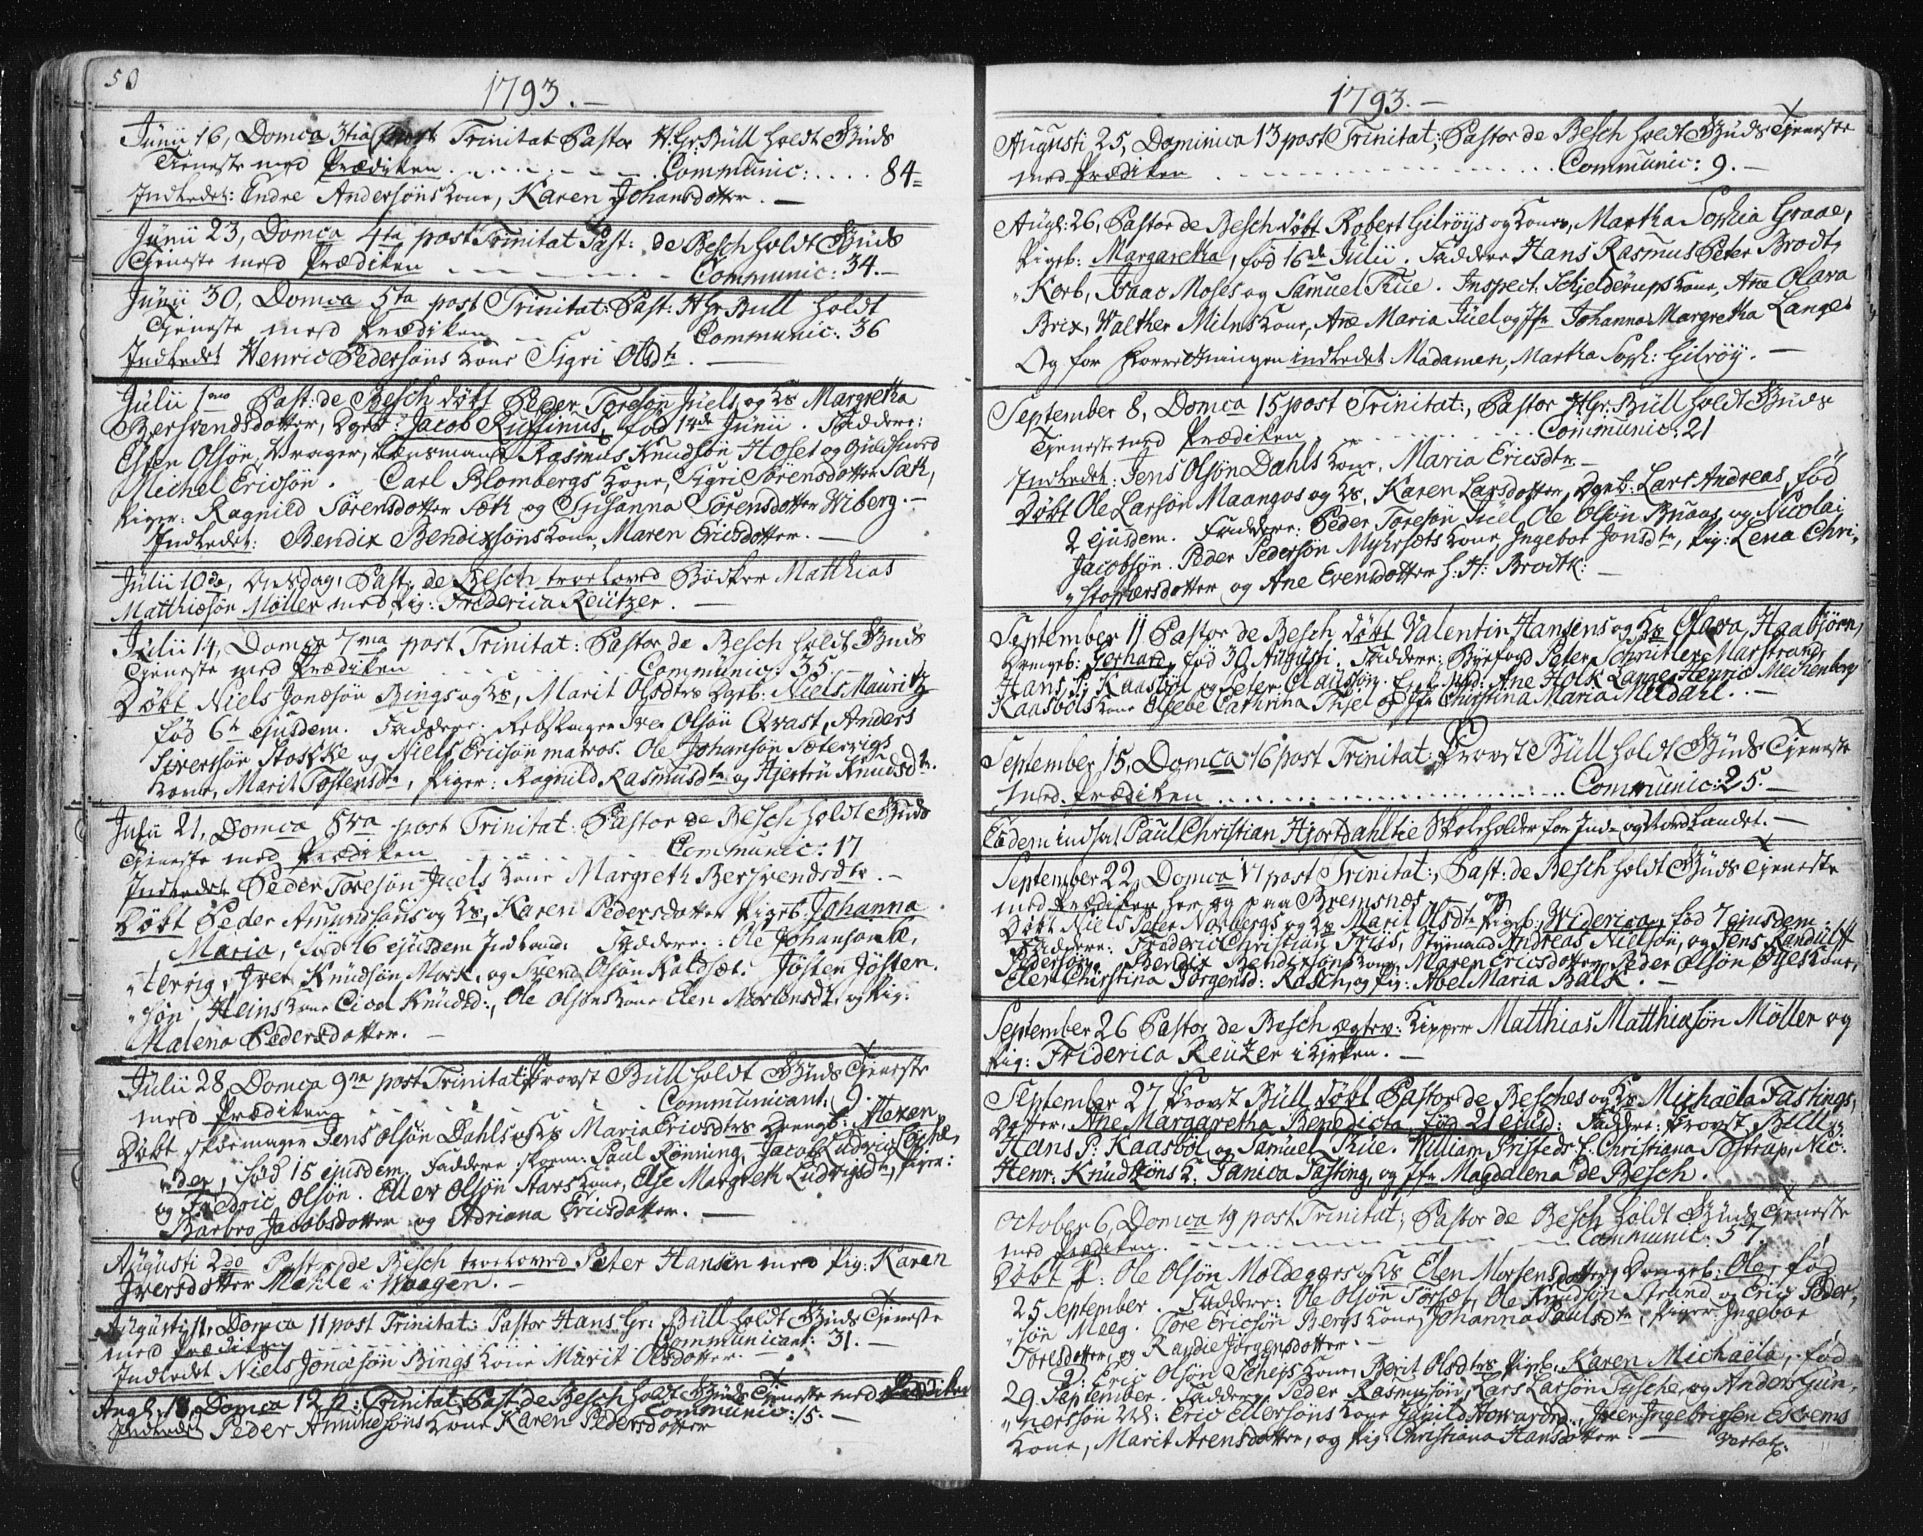 50
1793.
Junii 16, Domca 3tia post Trinitat Pastor H. Gr. Büll holdt Guds
Tieneste med Prædiken . . . . Communic: . . . . 84
Indledet: Endre Andersøns Kone, Karen Johansdotter.
Junii 23, Domca 4ta post Trinitat Past: de Besch holdt Guds
Tieneste med Prædiken . . . . Communic: 34.
Junii 30, Domca 5ta post Trinitat: Past: H Gr Bull holdt
Tjeneste med Prædiken . . . . Communic: 36
Indledet Henric Pedersøns Kone Sigri Olsdtr
Julii 1mo Past: de Besch døbt Peder Toresøn Juels og Hs Margretha
Bersvendsdotter, Dgeb: Jacob Ruffinus, fød 14de Junii. Faddere:
Esten Olsøn, Vrager, Lensmand Rasmus Knudsøn Hoset og Guldsmed
Michel Ericsøn. Carl Blombergs Kone, Sigri Sørensdotter Sæth,
Piger: Ragnild Sørensdotter Sæth og Susanna Sørensdotter Wiberg.
Indledet: Bendix Bendixsøns Kone, Maren Ericsdotter.
Julii 10de, Onsdag, Past: de Besch troeloved Bødker Matthias
Matthiæsøn Møller med Pig: Friderica Reützer.
Julii 14, Domca 7ma post Trinitat: Pastor de Besch holdt Guds
Tieneste med Prædiken . . . . Communic: 35
Døbt Niels Jonæsøn Brings og Hs, Marit Olsdtrs Dgeb: Niels Mauritz
fød 6te ejusdem. Faddere: Rebslager Iver Olsøn Qvast, Anders
Sivertsøn Stokke og Niels Ericsøn matros. Ole Johansøn Sæterrigs
Kone, Marit Tostensdtr, Piger: Ragnild Rasmusdtr og Hjertru Knudsdtr.
Julii 21, Domca 8va post Trinitat: Pastor de Besch holdt Guds
Tjeneste med Prædiken . . . . Communic: 17
Indledet Peder Toresøn Juels Kone Margreth Bersvendsdtr.
Døbt Peder Amundsøns og Hs, Karen Pedersdotter Pigeb: Johanna
Maria, fød 16 ejusdem Faddere: Ole Johansøn Sæ,
terrig, Iver Knudsøn Mork, og Svend Olsøn Kaldsæt. Jøsten Jøsten,
søn Heins Kone Cicel Knudsd:, Ole Olsøns Kone Elen Mortensdtr, og Pig:
Malena Pedersdotter.
Julii 28, Domca 9na post Trinitat: Provst Büll holdt Guds Tjeneste
med Prædiken . . . . Communicant: 9.
Døbt Skoemager Jens Olsøn Dahls og Hs Maria Ericsdtrs Drengb: Alexen,
der, fød 15 ejusdem. Faddere Skoem: Paul Rønning, Jacob Ludvic
og Fredric Olsøn. Eller Olsøn Stars Kone, Else Margreth Ludvigsdtr, Piger:
Barbro Jacobsdotter og Adriana Ericsdotter.
Augusti 2do Past: de Besch troeloved Peter Hansen med Pig: Karen
Iversdotter Mæhle i Waagen.
Augusti 11, Domca 11 post Trinitat: Pastor Hans Gr: Büll holdt Guds Tjeneste
med Prædiken . . . . Communicant: 31.
Indledet Niels Jonæsøn Brings Kone Marit Olsdotter.
Augl: 18, Domca 12 p: Trinitat, Past: de Besch holdt Guds Tjeneste med Prædiken
Communic: 15.
Indledet Peder Amundsøns Kone Karen Pedersdotter
1793.
Augusti 25, Dominica 13 post Trinitat: Pastor de Besch holdt Guds Tjeneste
med Prædiken . . . . Communic: 9.
Augl: 26, Pastor de Besch døbt Robert Gilrøys og Kone, Martha Sophia Graae,
Pigeb: Margaretha, fød 16de Julii. Faddere Hans Rasmus Peter Brodt,
Korb, Isaac Moses og Samuel Tue. Inspect. Schjelderups Kone, Ane Olava
Brix, Walther Milns Kone, Ane Maria Juel og Jfr Johanna Margretha Lange
Og for Forretningen indledet Madamen, Martha Soph: Gilrøy.
September 8, Domca 15 post Trinitat:, Pastor H Gr: Büll holdt Guds
Tjeneste med Prædiken . . . . Communic: 21
Indledet: Jens Olsøn Dahls Kone, Maria Ericsdtr.
Døbt Ole Larsøn Maangos og Hs, Karen Larsdotter, Dgeb: Lars Andreas, fød
2 ejusdem. Faddere: Peder Toresøn Juel, Ole Olsøn Bruaas og Nicolai
Jacobsøn. Peder Pedersøn Myhrsæts Kone Ingebor Jonsdtr, Pig: Lena Chri,
stophersdotter og Ane Evensdotter h: H: Brodtk:
September 11 Pastor de Besch døbt Valentin Hansens og Hs Olava Haabjørn,
Drengeb: Gerhard, fød 30 Augusti. Faddere: Byefogd Peter Schnitler Marstrand,
Hans P: Kaasbøl og Peter Clausøn. Enk. Mad: Ane Holk Lange, Henric Mechenberg
Kaasbøls Kone Elsebe Cathrina Thiel og Jfr Christina Maria Meldahl.
September 15, Domca 16 post Trinitat: Provst Büll holdt Guds Tjeneste
med Prædiken . . . . Communic: 25.
Eodem indsat Paul Christian Hjortdahl til Skoleholder for Inde og Nordlandet.
September 22, Domca 17 post Trinitat:, Past: de Besch holdt Guds Tjeneste
med Prædiken her og paa Bremsnæs
Døbt Niels Peter Norbergs og Hs Marit Olsdtr Pigeb: Widerica, fød 7 ejusdem.
Faddere: Frideric Christian Friis, Styrmand Andreas Nielsøn, og Jens Randulff
Pedersøn. Bendix Bendixsøns Kone, Maren Ericsdotter, Peder Olsøn Øyes Kone,
Elen Christina Jørgensd: Rasch, og Pig: Abel Maria Balk.
September 26 Pastor de Besch ægtev: Kipper Matthias Matthiæsøn Møller og
Pig: Friderica Reützer i Kirken.
September 27 Provst Büll døbt Pastor de Besches og Hs Michaela Fastings,
Datter: Ane Margaretha Benedicta, fød 21 ejusd: Faddere: Provst Büll,
Hans P: Kaasbøl og Samuel Tue. William Fristeds E. Christiana Tostrup, Nic:
Henr: Knudtzøns K: Tamea Fasting, og Jfr Magdalena de Besch.
October 6, Domca 19 post Trinitat: Pastor de Besch holdt Guds Tjeneste
med Prædiken. . . . Communic: 37.
Døbt Ole Olsøn Moldegers og Hs Elen Morsensdotter, Drengeb: Ole, fød
25 September. Faddere: Ole Olsøn Torsæt, Ole Knudsøn Strand og Eric Peder,
søn Meeg. Tore Ericsøn Bergs Kone, Johanna Paulsdtr, Piger: Ingebor
Torlsdotter, og Randie Jørgensdotter.
2. Eric Olsøn Schejs Kone, Berit Olsdtrs Pigeb: Karen Michaela, fød
29 September. Faddere Peder Rasmusøn, Lars Larsøn Tysche, og Anders Gun,
nersøn Eric Ellersøns Kone Gunild Howardsd:, Iver Ingebrigsen Ekrems
Kone, Marit Arensdotter, og Pig: Christiana Hansdotter.
Vertat: